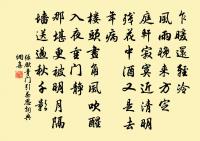 乍暖還輕冷
風雨晚來方定
庭軒寂寞近清明
殘花中酒又是去
年病
樓頭畫角風吹醒
入夜重門靜
那堪更被明月隔
墻送過秋千影